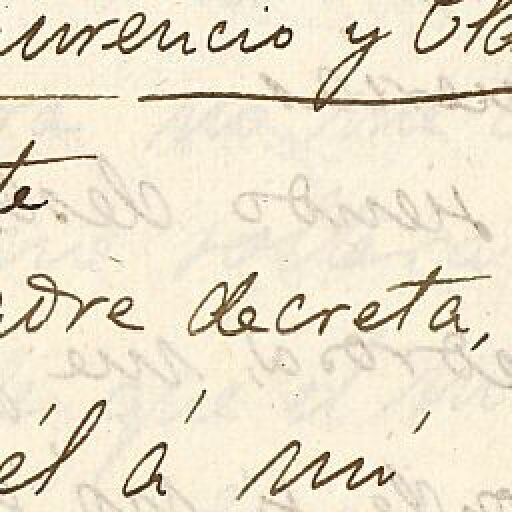 urencio y
te
adre decreta,
él á mí